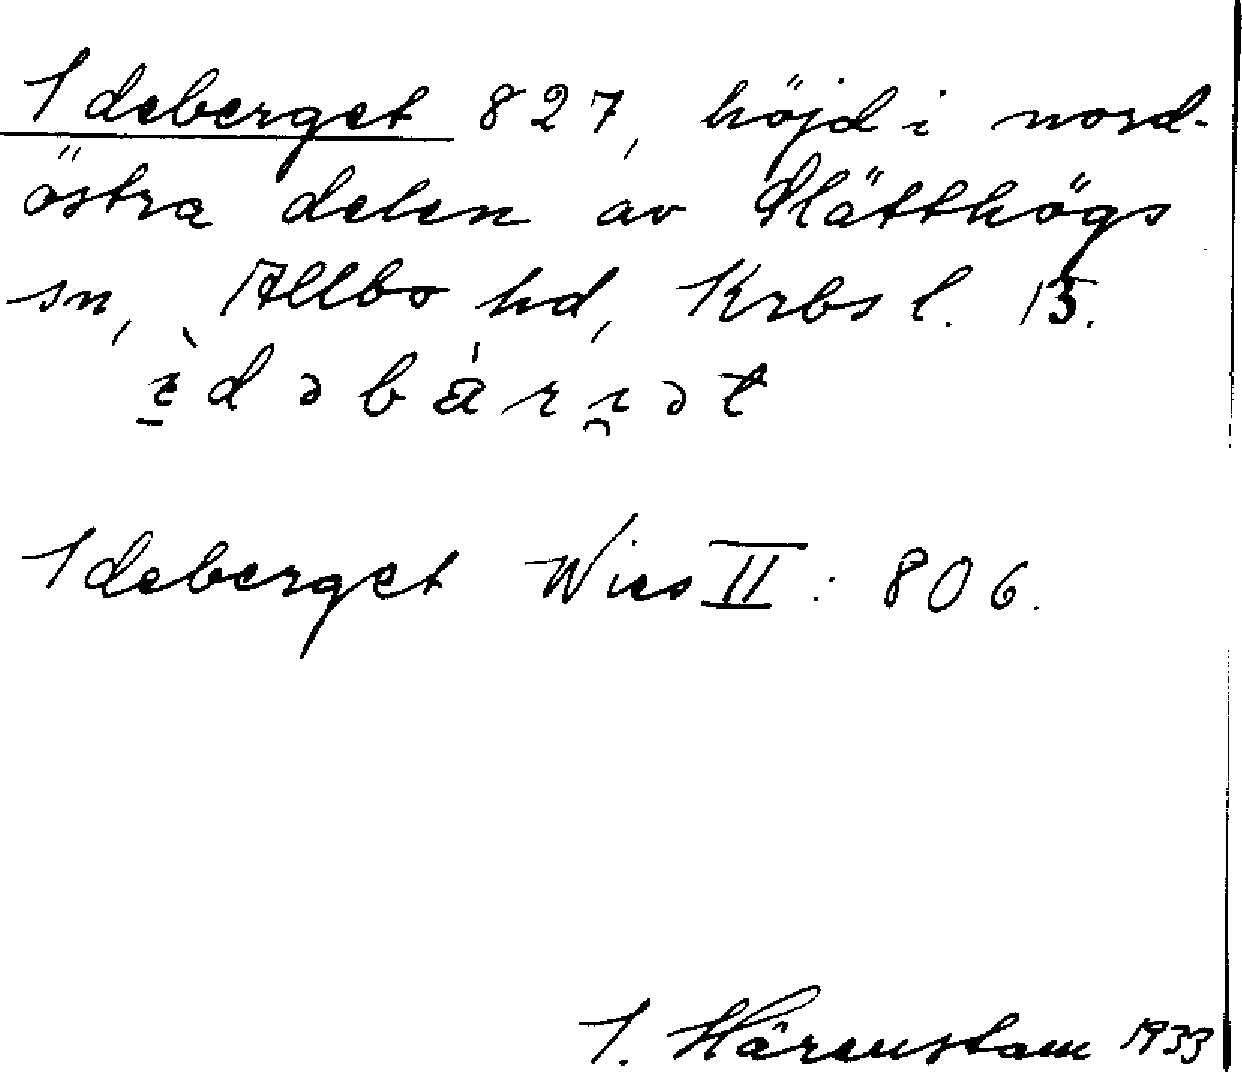 Ideberget 827, höjd i nord-
östra delen av Slätthögs
sn, Allbo hd, Krbs l. 15.
Ideberget Wies II: 806.
I. Härenstam 1933